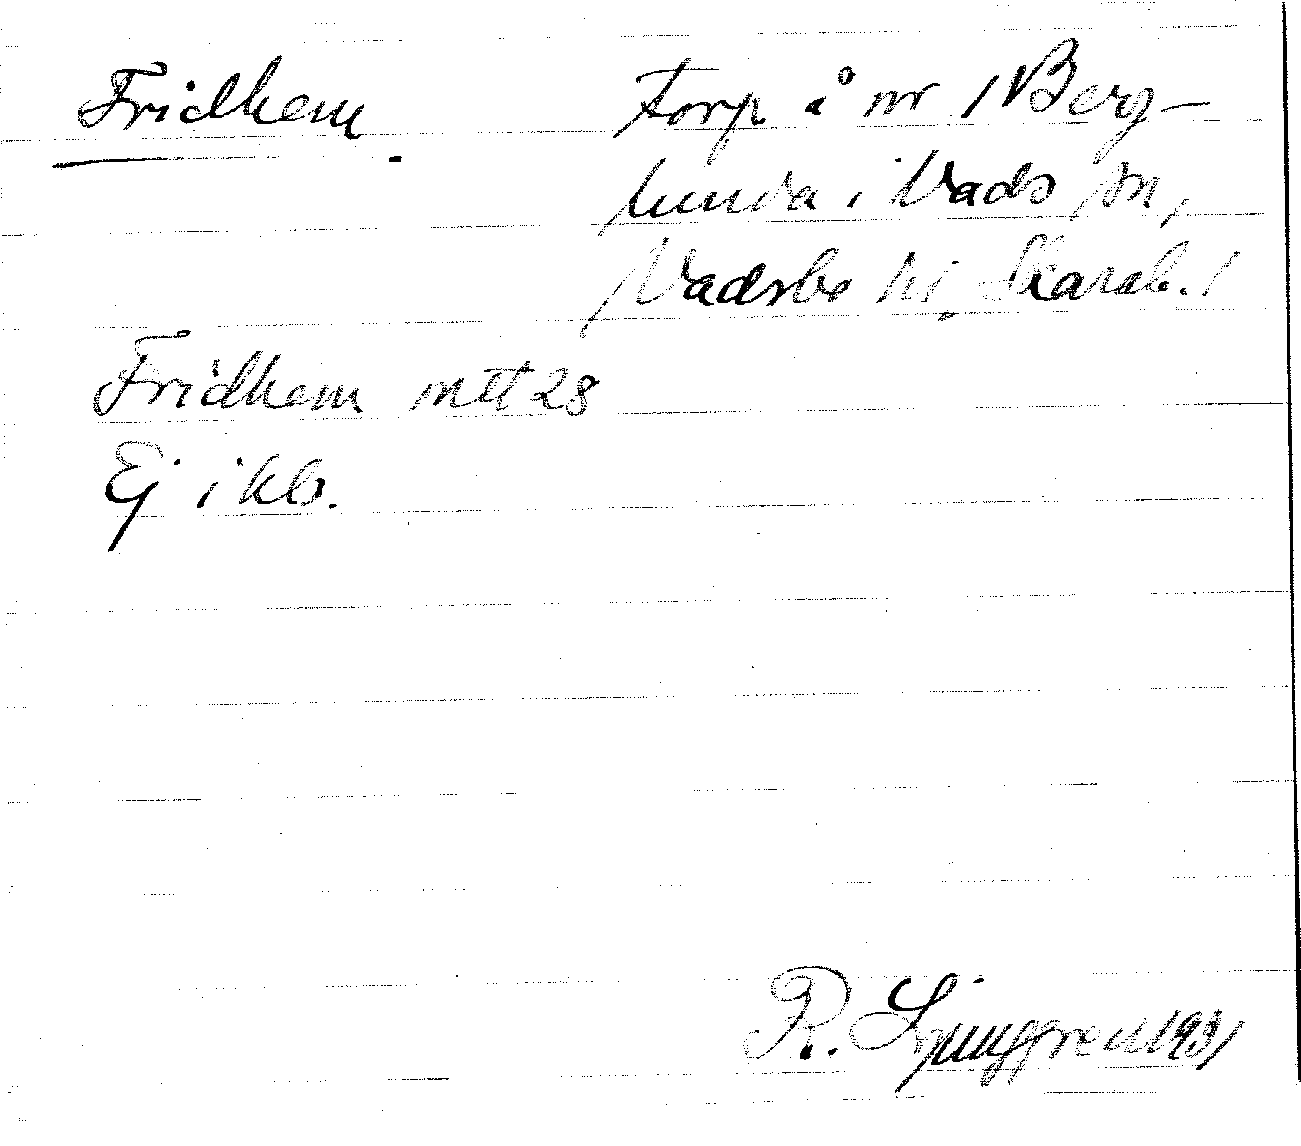 Fridhem.
Torp å nr 1 Berg-
lunda i Vads sn,
Vadsbo hd, Skarab. l
Fridhem mtl 28
Ej i kb.
R. Ljunggren 1931